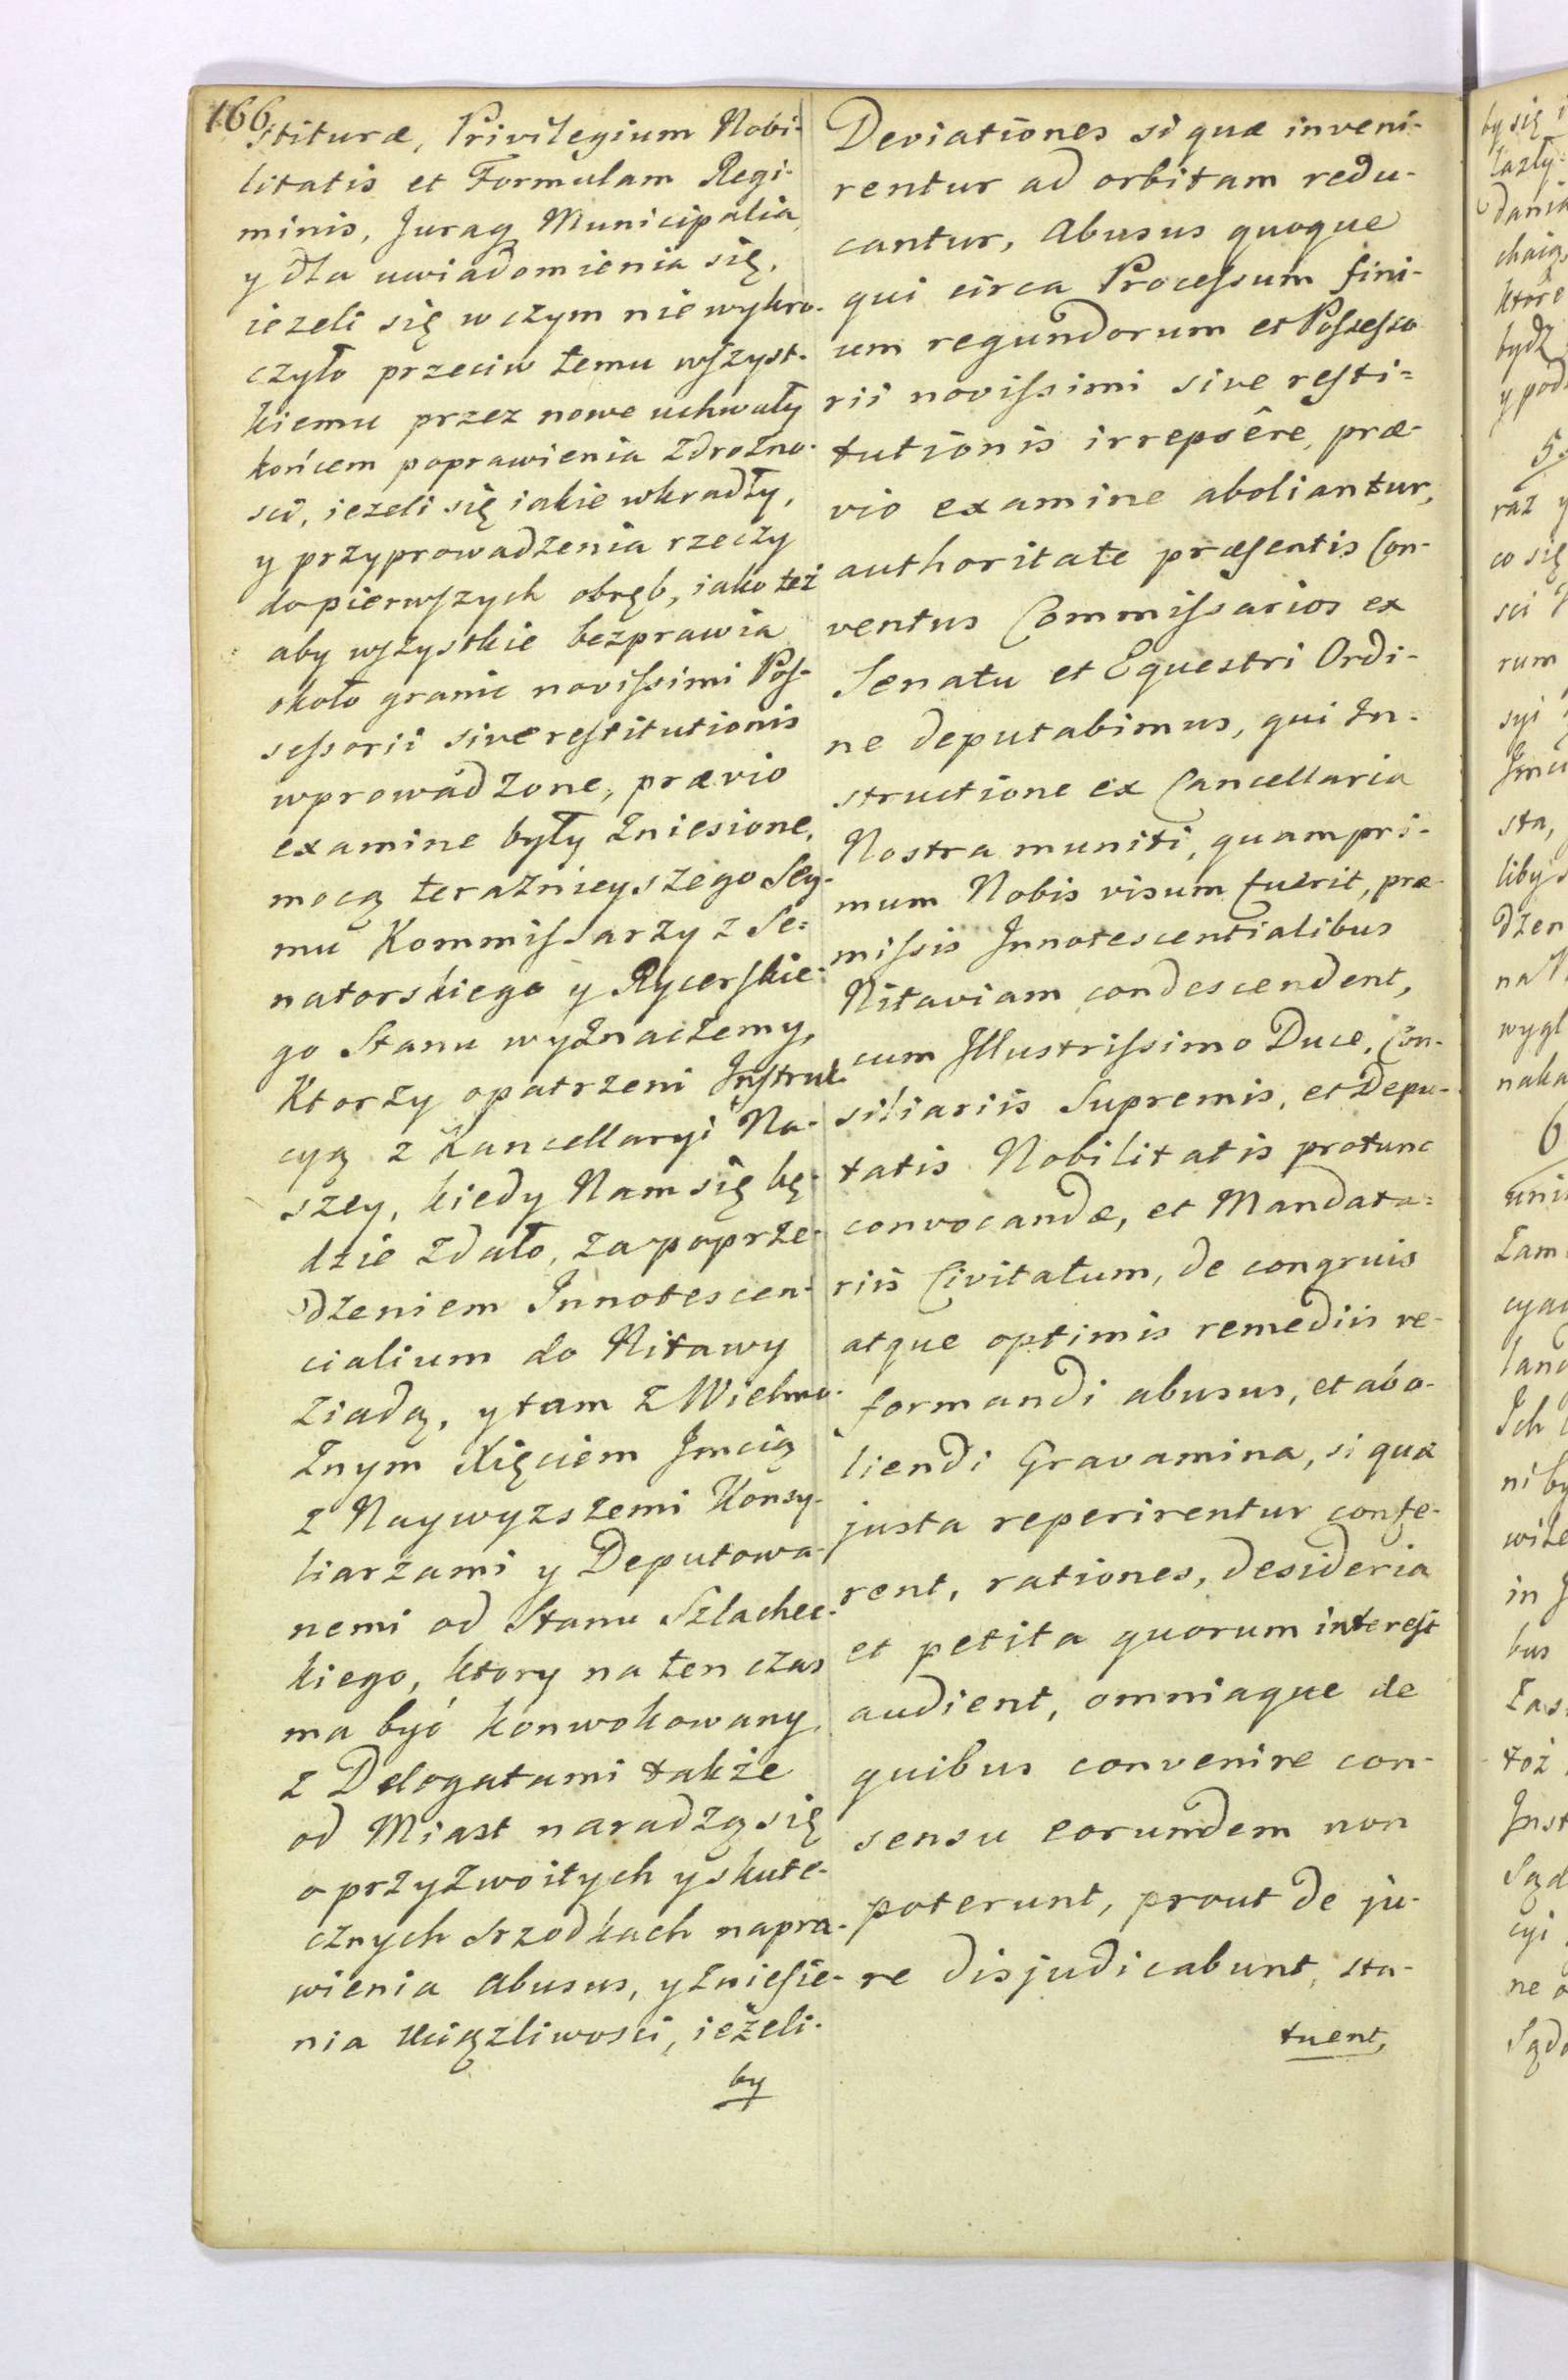 166
stituræ, Privilegium Nobi-
litatis et Formulam Regi-
minis, Juraq Municipalia
y dla uwiadomienia się,
iezeli się w czym nie wykro-
czyło przeciw temu wszyst-
kiemu przez nowe uchwały
końcem poprawienia zdrożno-
sci, iezeli się iakie wkradły,
y przyprowadzenia rzeczy
do pierwszych obręb, iako też
aby wszystkie bezprawia
około granic novissimi Pos-
sessorii sive restitutionis
wprowadzone, prævio
examine były zniesione,
mocą teraznieyszego Sey-
mu Kommissarzy z Se-
natorskiego y Rycerskie-
go Stanu wyznaczemy,
Ktorzy opatrzeni Instruk-
cyą z Kancellaryi Na-
szey, kiedy Nam się bę-
dzie zdało, za poprze-
dzeniem Innotescen-
cialium do Mitawy
ziadą, y tam z Wielmo-
żnym Xięciem Jmcią
z Naywyzszemi Konsy-
liarzami y Deputowa-
nemi od Stanu Szlachec-
kiego, ktory na ten czas
ma być konwokowany,
z Delogatami także
od Miast naradzą się
o przyzwoitych y skute-
cznych srzodkach napra-
wienia abusus, y zniesie-
nia uciązliwosci, ieżeli-
by
Deviationes si quæ inveni-
rentur ad orbitam redu-
cantur, abusus quoque
qui circa Processum fini-
um regundorum et Possesso
rii novissimi sive resti-
tutionis irrepsêre, præ-
vio examine aboliantur,
authoritate præsentis Con-
ventus Commissarios ex
Senatu et Equestri Ordi-
ne deputabimus, qui In-
structione ex Cancellaria
Nostra muniti, quampri-
mum Nobis visum fuerit, præ-
missis Innotescentialibus
Mitaviam condescendent,
cum Illustrissimo Duce, Con-
siliariis Supremis, et Depu-
tatis Nobilitatis protunc
convocandæ, et Mandata-
riis Civitatum, de congruis
atque optimis remediis re-
formandi abusus, et abo-
liendi Gravamina, si quæ
justa reperirentur confe-
rent, rationes, desideria
et petita quorum interest
audient, omniaque de
quibus convenire con-
sensu eorumdem non
poterunt, prout de ju-
re disjudicabunt, sta-
tuent,
by się i
dania
ktore
bydz
5
raz y
co się
sci
rum
syi
sta,
dzen
wygl
naka
6
cyau
land
Ich
ni by
wile
in J
bus
toż
Inst
Sąd
cyi
ne o
Sądo